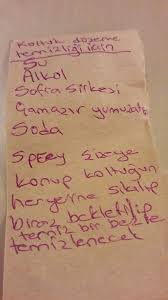 Koltuk döşeme
temizliği için
Su
Alkol
Sofra Sirkesi
Çamaşır yumuşatı
Soda
Sprey şişeye
konup koltuğun
heryerine sıkılıp
biraz bekletilip
temiz bir bezle
temizlenecek